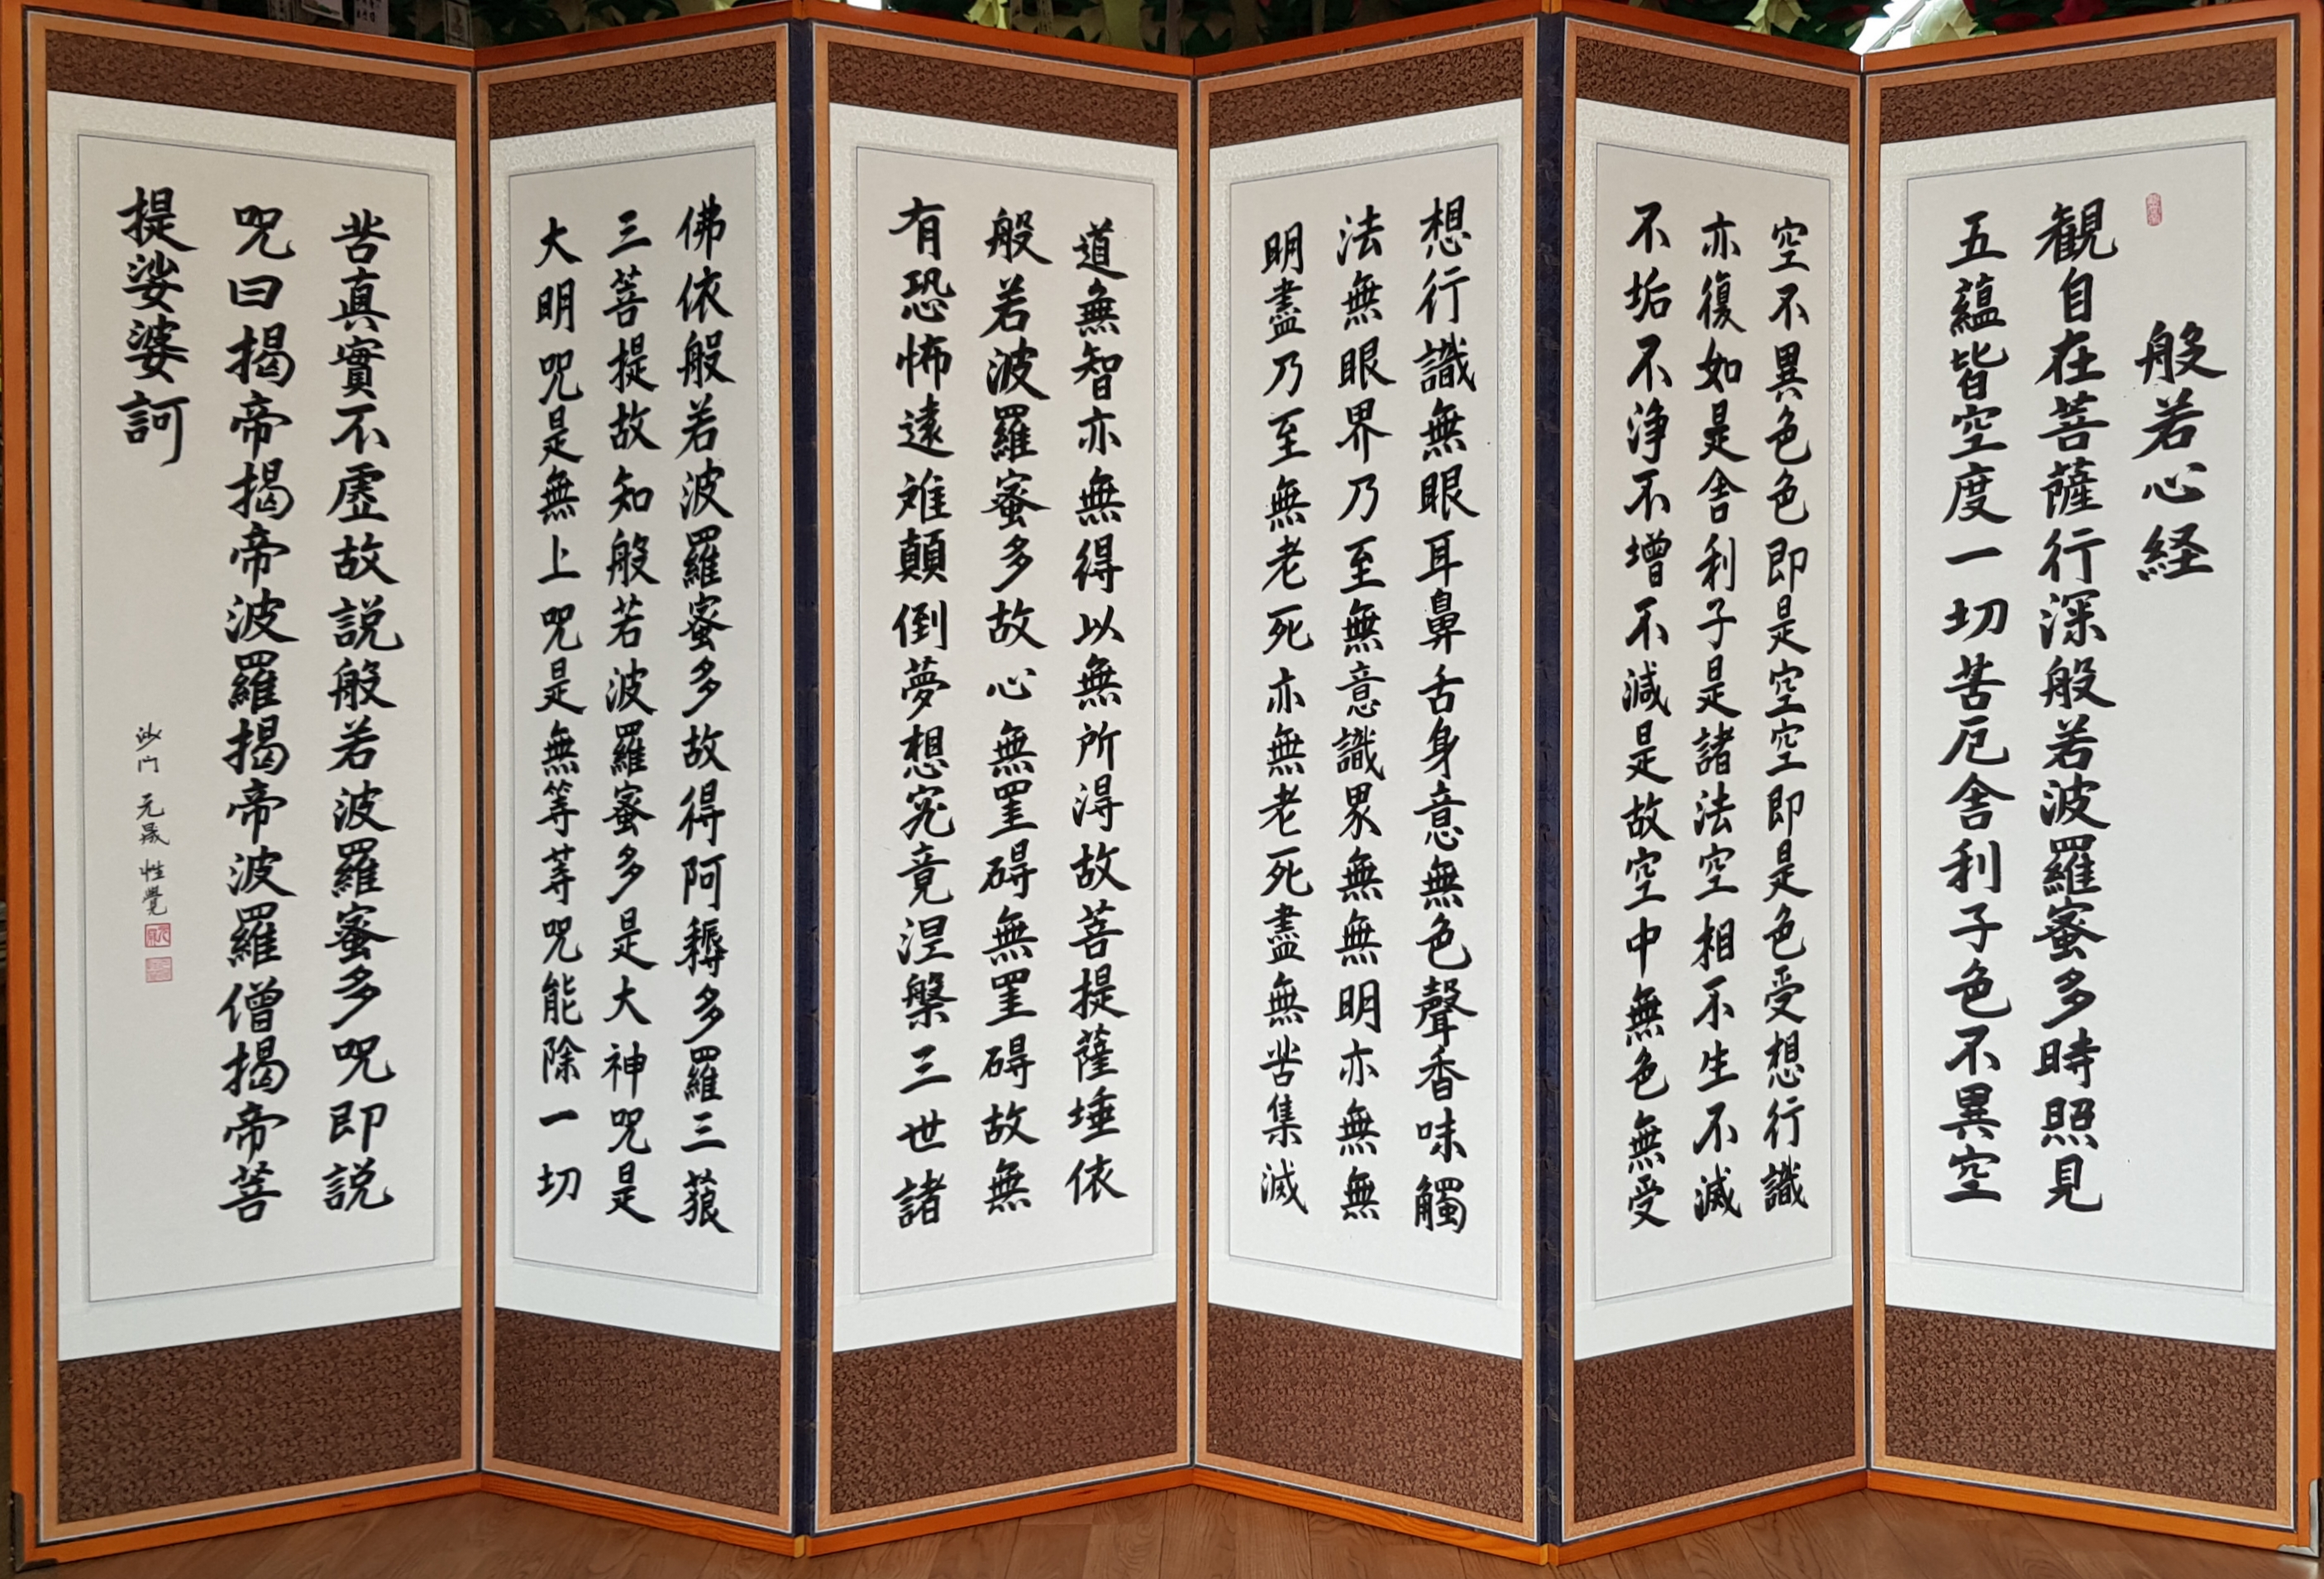 般若心経
観自在菩薩行深般若波羅蜜多時照見
五蘊皆空度一切苦厄舎利子色不異空
空不異色色即是空空即是色受想行識
亦復如是舎利子是諸法空相不生不滅
不垢不浄不增不減是故空中無色無受
想行識無眼耳鼻舌身意無色聲香味觸
法無眼界乃至無意識界無無明亦無無
明盡乃至無老死亦無老死盡無苦集滅
道無智亦無得以無所得故菩提薩埵依
般若波羅蜜多故心無罣碍無罣碍故無
有恐怖遠难顛倒夢想究竟涅槃三世諸
佛依般若波羅蜜多故得阿耨多羅三藐
三菩提故知般若波羅蜜多是大神呪是
大明呪是無上呪是無等等呪能除一切
苦真實不虛故説般若波羅蜜多呪即説
呪曰揭帝揭帝波羅揭帝波羅僧揭帝菩
提娑婆訶
沙門 元晟 性覺